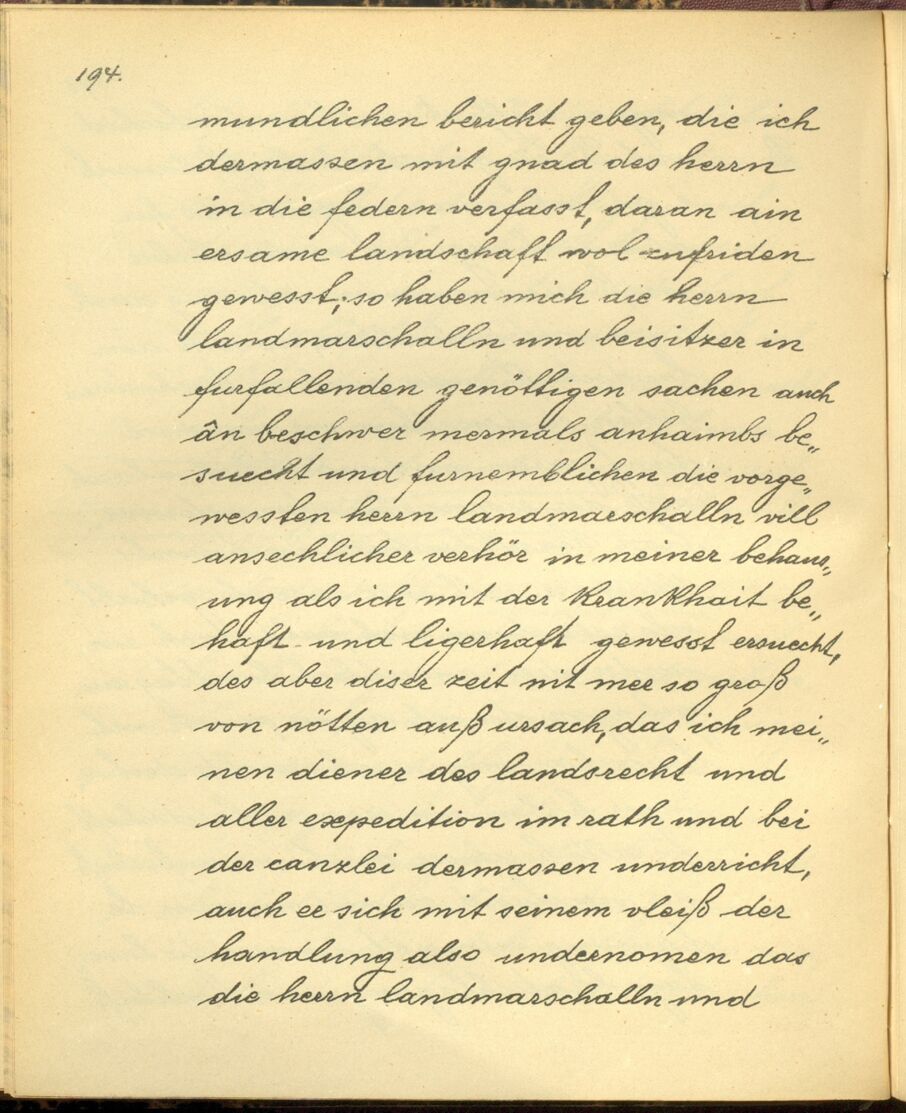 194.
mundlichen bericht geben, die ich
dermassen mit gnad des herrn
in die federn verfasst, daran ain
ersame landschaft wol zufriden
gewesst; so haben mich die herrn
landmarschalln und beisitzer in
furfallenden genöttigen sachen auch
ân beschwer mermals anhaimbs be„
suecht und furnemblichen die vorge„
wessten herrn landmarschalln vill
ansechlicher verhör in meiner behaus„
ung als ich mit der Krankhait be„
haft und ligerhaft gewesst ersuecht,
des aber diser zeit nit mer so groß
von nötten auß ursach, das ich mei„
nen diener des landsrecht und
aller expedition im rath und bei
der canzlei dermassen underricht,
auch er sich mit seinem vleiß der
handlung also undernomen das
die herrn landmarschalln und